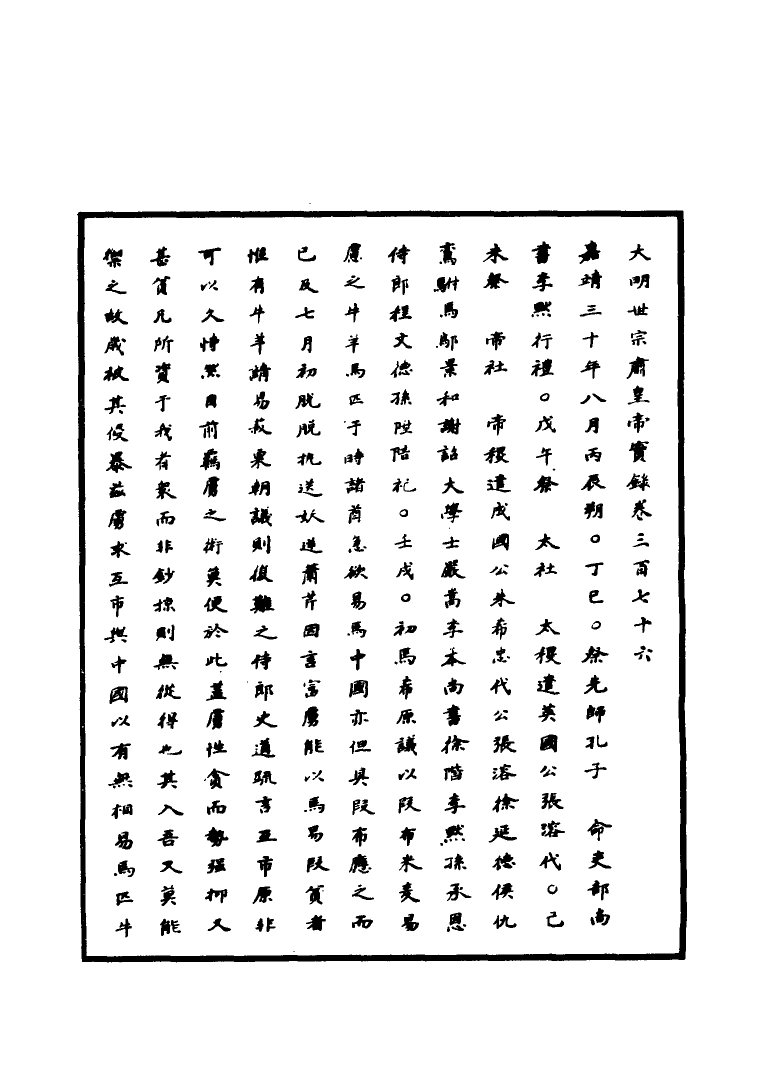 大明世宗肅皇帝實錄卷三百七十六
嘉靖三十年八月丙辰朔○丁巳○祭先師孔子　命吏部尚
書李默行禮○戊午祭　太社　太稷遣英國公張溶代○己
未祭　帝社　帝稷遣成國公朱希忠代公張溶徐延德侯仇
鸞駙馬鄔景和謝詔大學士嚴嵩李本尚書徐階李默孫承恩
侍郎程文德孫陞陪祀○壬戌○初馬市原議以段布米麥易
虜之牛羊馬匹于時諸酋急欲易馬中國亦但具段布應之而
已及七月初脫脫執送妖逆蕭芹因言富虜能以馬易段貧者
惟有牛羊請易菽粟朝議則復難之侍郎史道疏言互市原非
可以久恃然目前羈虜之術莫便於此蓋虜性貪而勢強抑又
甚貧凡所資于我者衆而非鈔掠則無從得也其入吾又莫能
禦之故歲被其侵暴茲虜求互市與中國以有無相易馬匹牛